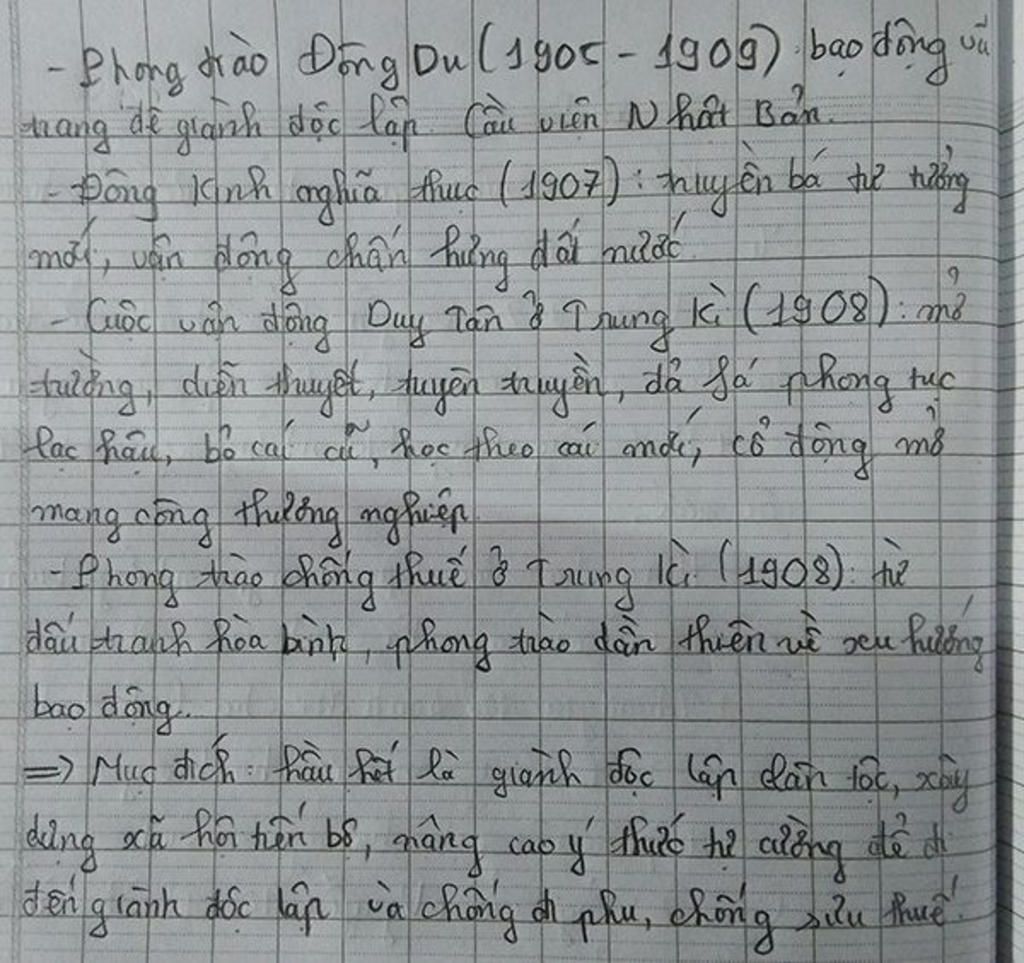 - Phong trào Đông Du (1905 - 1909) : bạo động vũ
trang để giành độc lập. Cầu viện Nhật Bản.
- Đông Kinh nghĩa thục (1907) : truyền bá tư tưởng
mới, vận động chấn hưng đất nước.
- Cuộc vận động Duy Tân ở Trung Kì (1908) : mở
trường, diễn thuyết, tuyên truyền, đả phá phong tục
lạc hậu, bỏ cái cũ, học theo cái mới, cổ động mở
mang công thương nghiệp.
- Phong trào chống thuế ở Trung Kì (1908) : từ
đấu tranh hòa bình, phong trào dần thiên về xu hướng
bạo động.
=> Mục đích : hầu hết là giành độc lập dân tộc, xây
dựng xã hội tiến bộ, nâng cao ý thức tự cường để đi
đến giành độc lập và chống đi phu, chống sưu thuế.